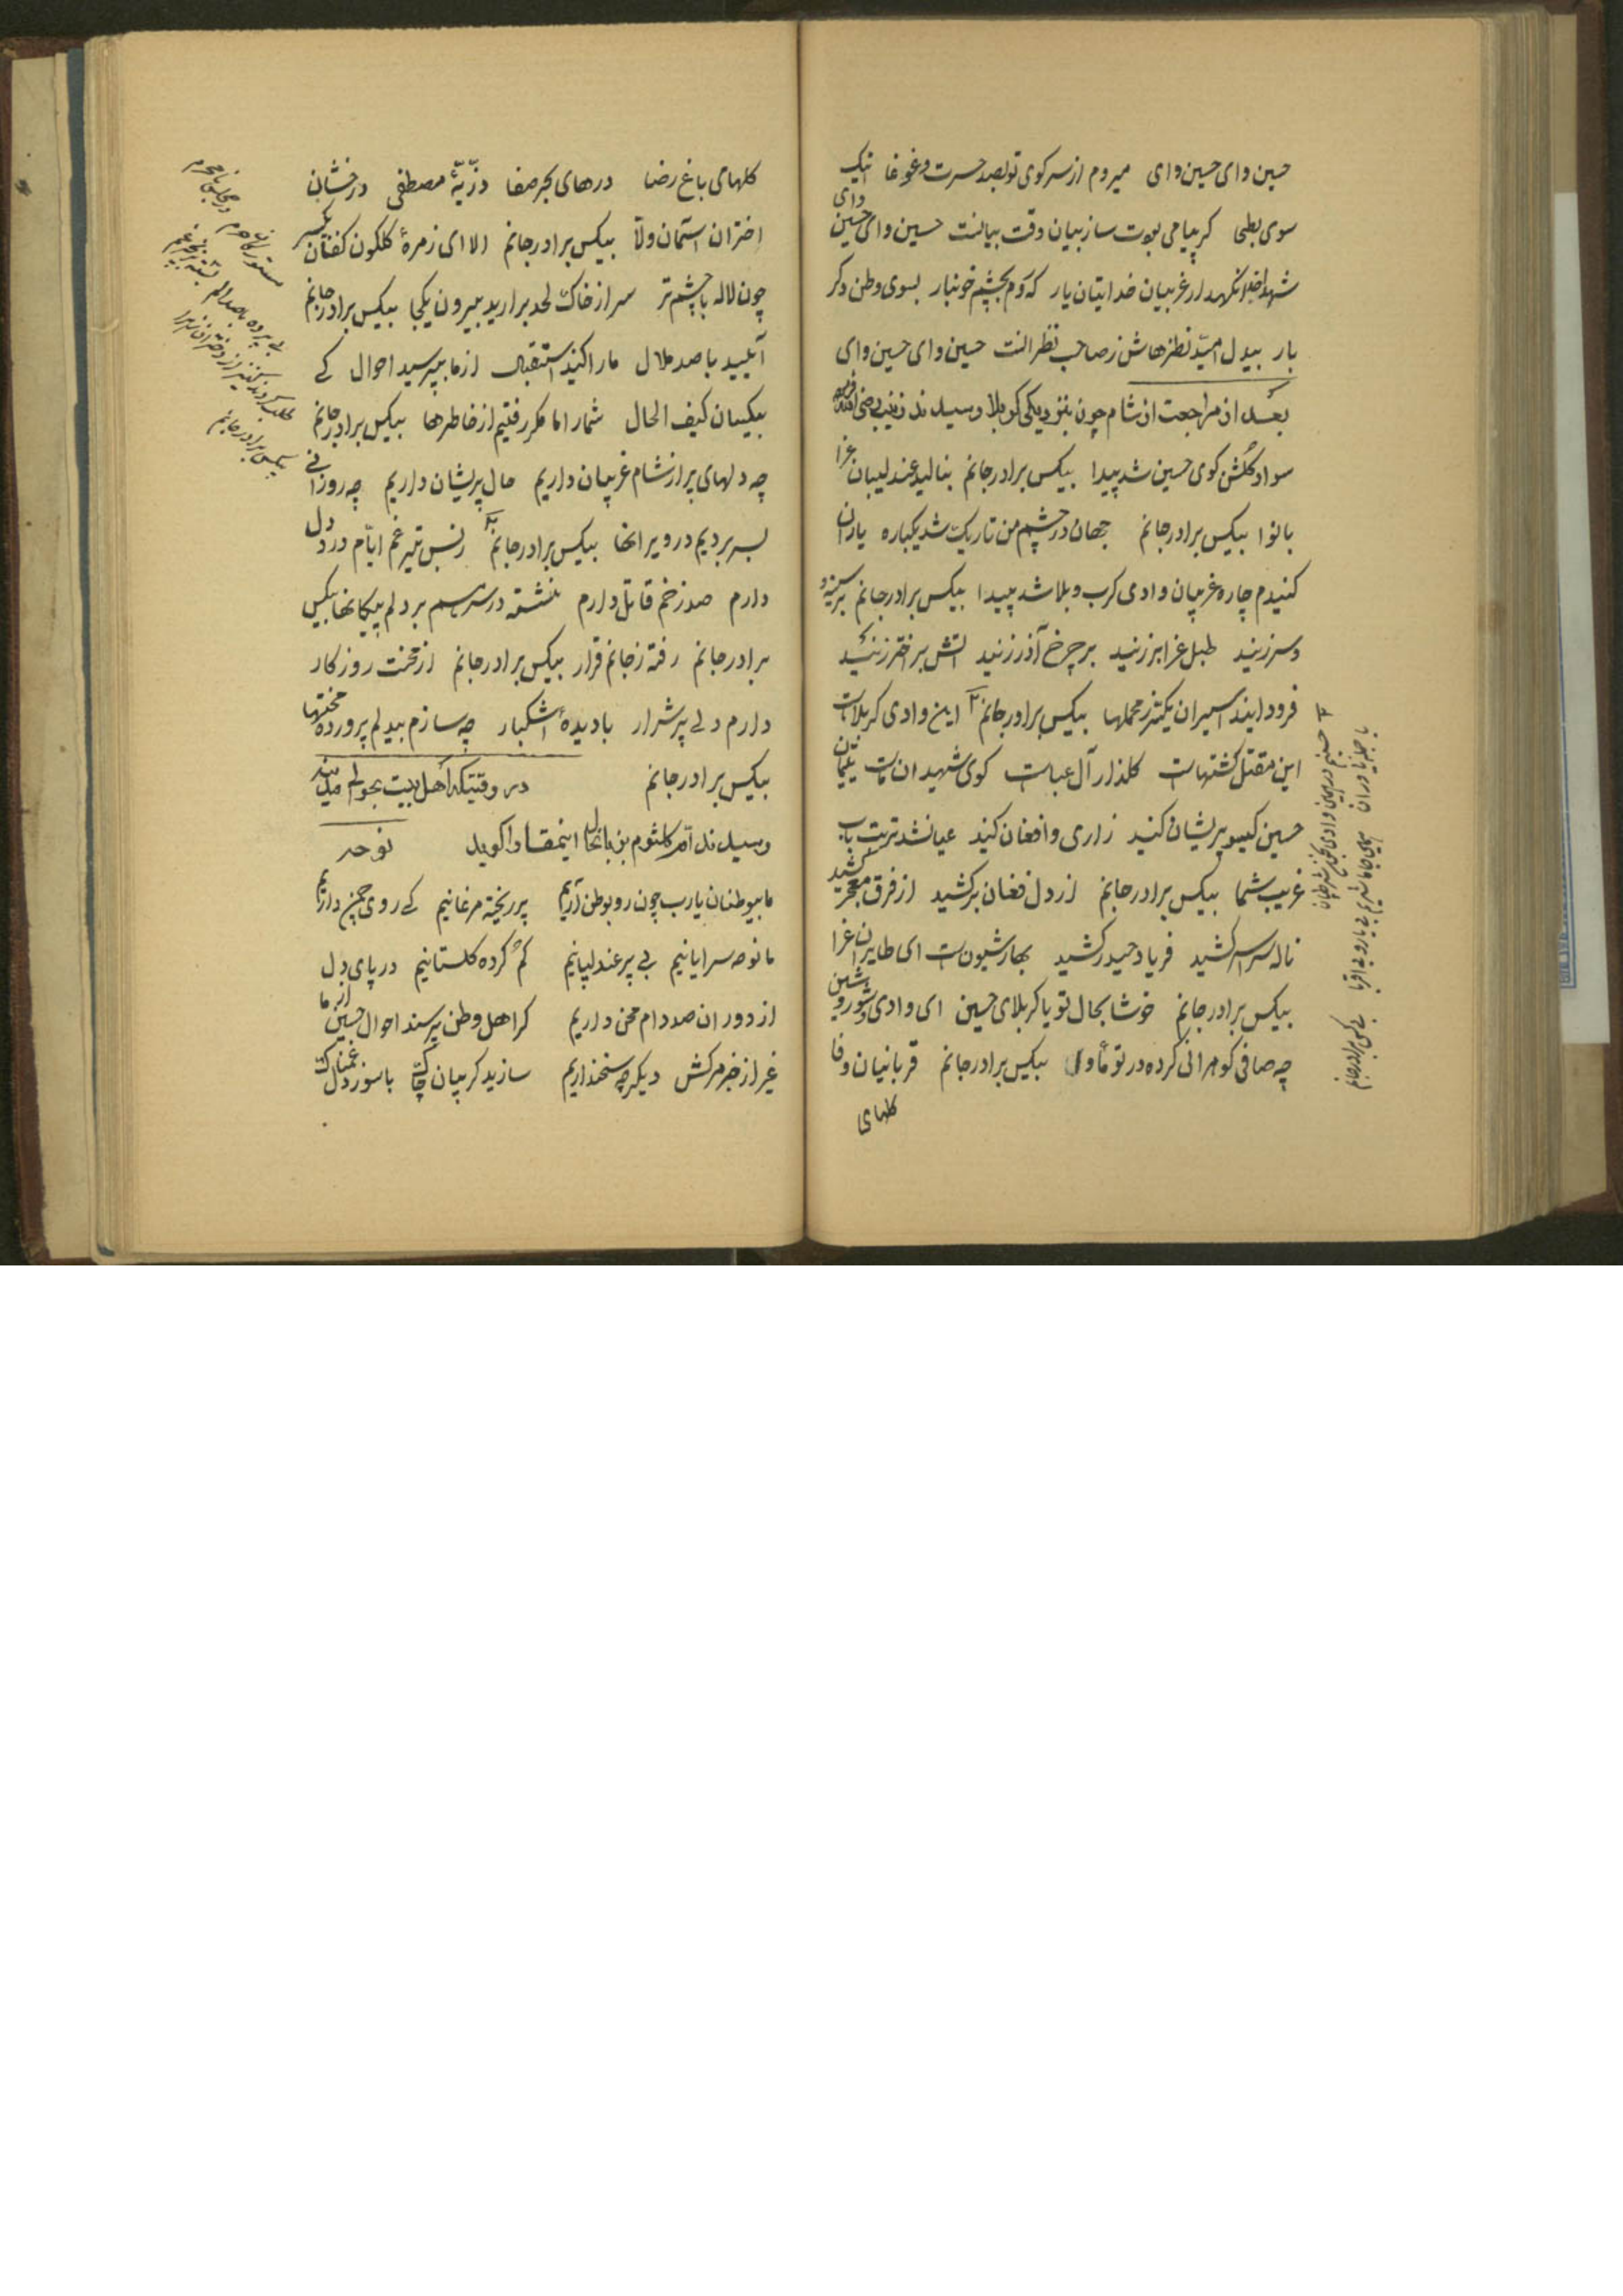 حسین وای حسین وای میروم از سر کوی تو بصد حسرت و غوغا اینک
سوی بطحی کر پیامی بودت ساز بیان وقت بیانست حسین وای حسین وای
شهدا نکهدار غریبان خدایتان یار که روم بچشم خونبار بسوی وطن دکر
بار بیدل امید نظرهاش ز صاحب نظرانت حسین وای حسین وای
بعد از مراجعت از شام چون بنزدیکی کربلا رسیدند زینب رضی الله
سواد کلشن کوی حسین شد پیدا بیکس برادر جانم بنالید عندلیبان عزا
بانوا بیکس برادر جانم جهان در چشم من تاریک شد یکباره یاران
کنیدم چاره غریبان وادی کرب و بلا شد پیدا بیکس برادر جانم بر سینه و
و سر زنید طبل عزا بر زنید بر چرخ آذر زنید اتش بر اختر زنید
فرود ایند اسیران یکسر ز محملها بیکس برادر جانم این وادی کربلاست
این مقتل کشتهاست کلذار آل عباست کوی شهیدان ماست یتیمان
حسین کیسو پریشان کنید زاری و افغان کنید عیان شد تربت باب
غریب شما بیکس برادر جانم از دل فغان برکشید از فرق معجر کشید
ناله سراسر کشید فریاد حیدر کشید بهار شیونست ای طایران عزا
بیکس برادر جانم خوشا بحال تو یا کربلای حسین ای وادی شور و شین
چه صافی کوهرانی کرده در تو مأوی بیکس برادر جانم قربانیان وفا
کلهای
کلهای باغ رضا درهای بحر صفا ذریّهٔ مصطفی درخشان
اختران آسمان ولا بیکس برادر جانم الا ای زمرهٔ کلکون کفنان یکسر
چون لاله با چشم تر سر از خاک لحد برارید بیرون یکجا بیکس برادر جانم
آیید با صد ملال ما را کنید استقبال از ما بپرسید احوال کے
بیکسان کیف الحال شما را اما مکر رفتیم از خاطرها بیکس برادر جانم
چه دلهای پر از شام غریبان داریم حال پریشان داریم چه روزانی
بسر بردیم در ویرانها بیکس برادر جانم ز بس تیر غم ایّام در دل
دارم صد زخم قاتل دارم نشسته در سر هم بر دلم پیکانها بیکس
برادر جانم رفته ز جانم قرار بیکس برادر جانم از محنت روزکار
دارم دلے پر شرار با دیدهٔ اشکبار چه سازم بیدلم پروردهٔ محنتها
بیکس برادر جانم در وقتیکه اهل بیت بحوالی مدینه
رسیدند امّ کلثوم بزبانحال اینمقاله را کوید نوحه
ما بیوطنان یارب چون رو بوطن آریم پر ریخته مرغانیم کے روی چمن داریم
ما نوحه سرایانیم بے پر عندلیبانیم کم کرده کلستانیم در پای دل
از دوران صد دام محن داریم کر اهل وطن پرسند احوال حسین از ما
غیر از خبر مرکش دیکر چه سخن داریم سازید کریبان چاک با سوز دل غمناک
مستوره کان حرم در مجلس نامحرم
بے پرده با صد الم
بیکس برادر جانم